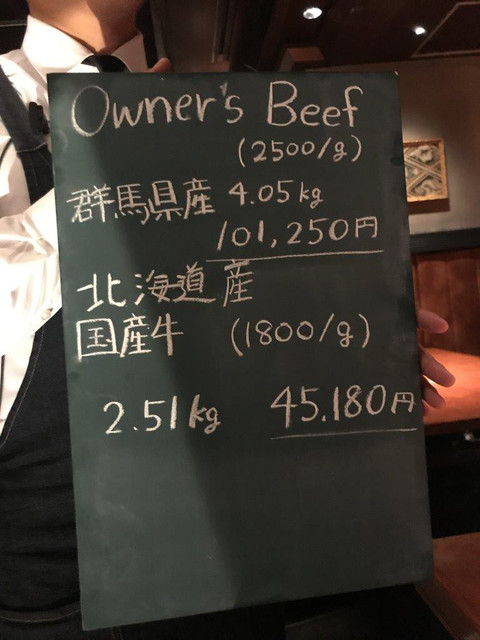 Owner's Beef
(2500/g)
群馬県産 4.05kg
101,250円
北海道産
国産牛 (1800/g)
2.51kg 45.180円